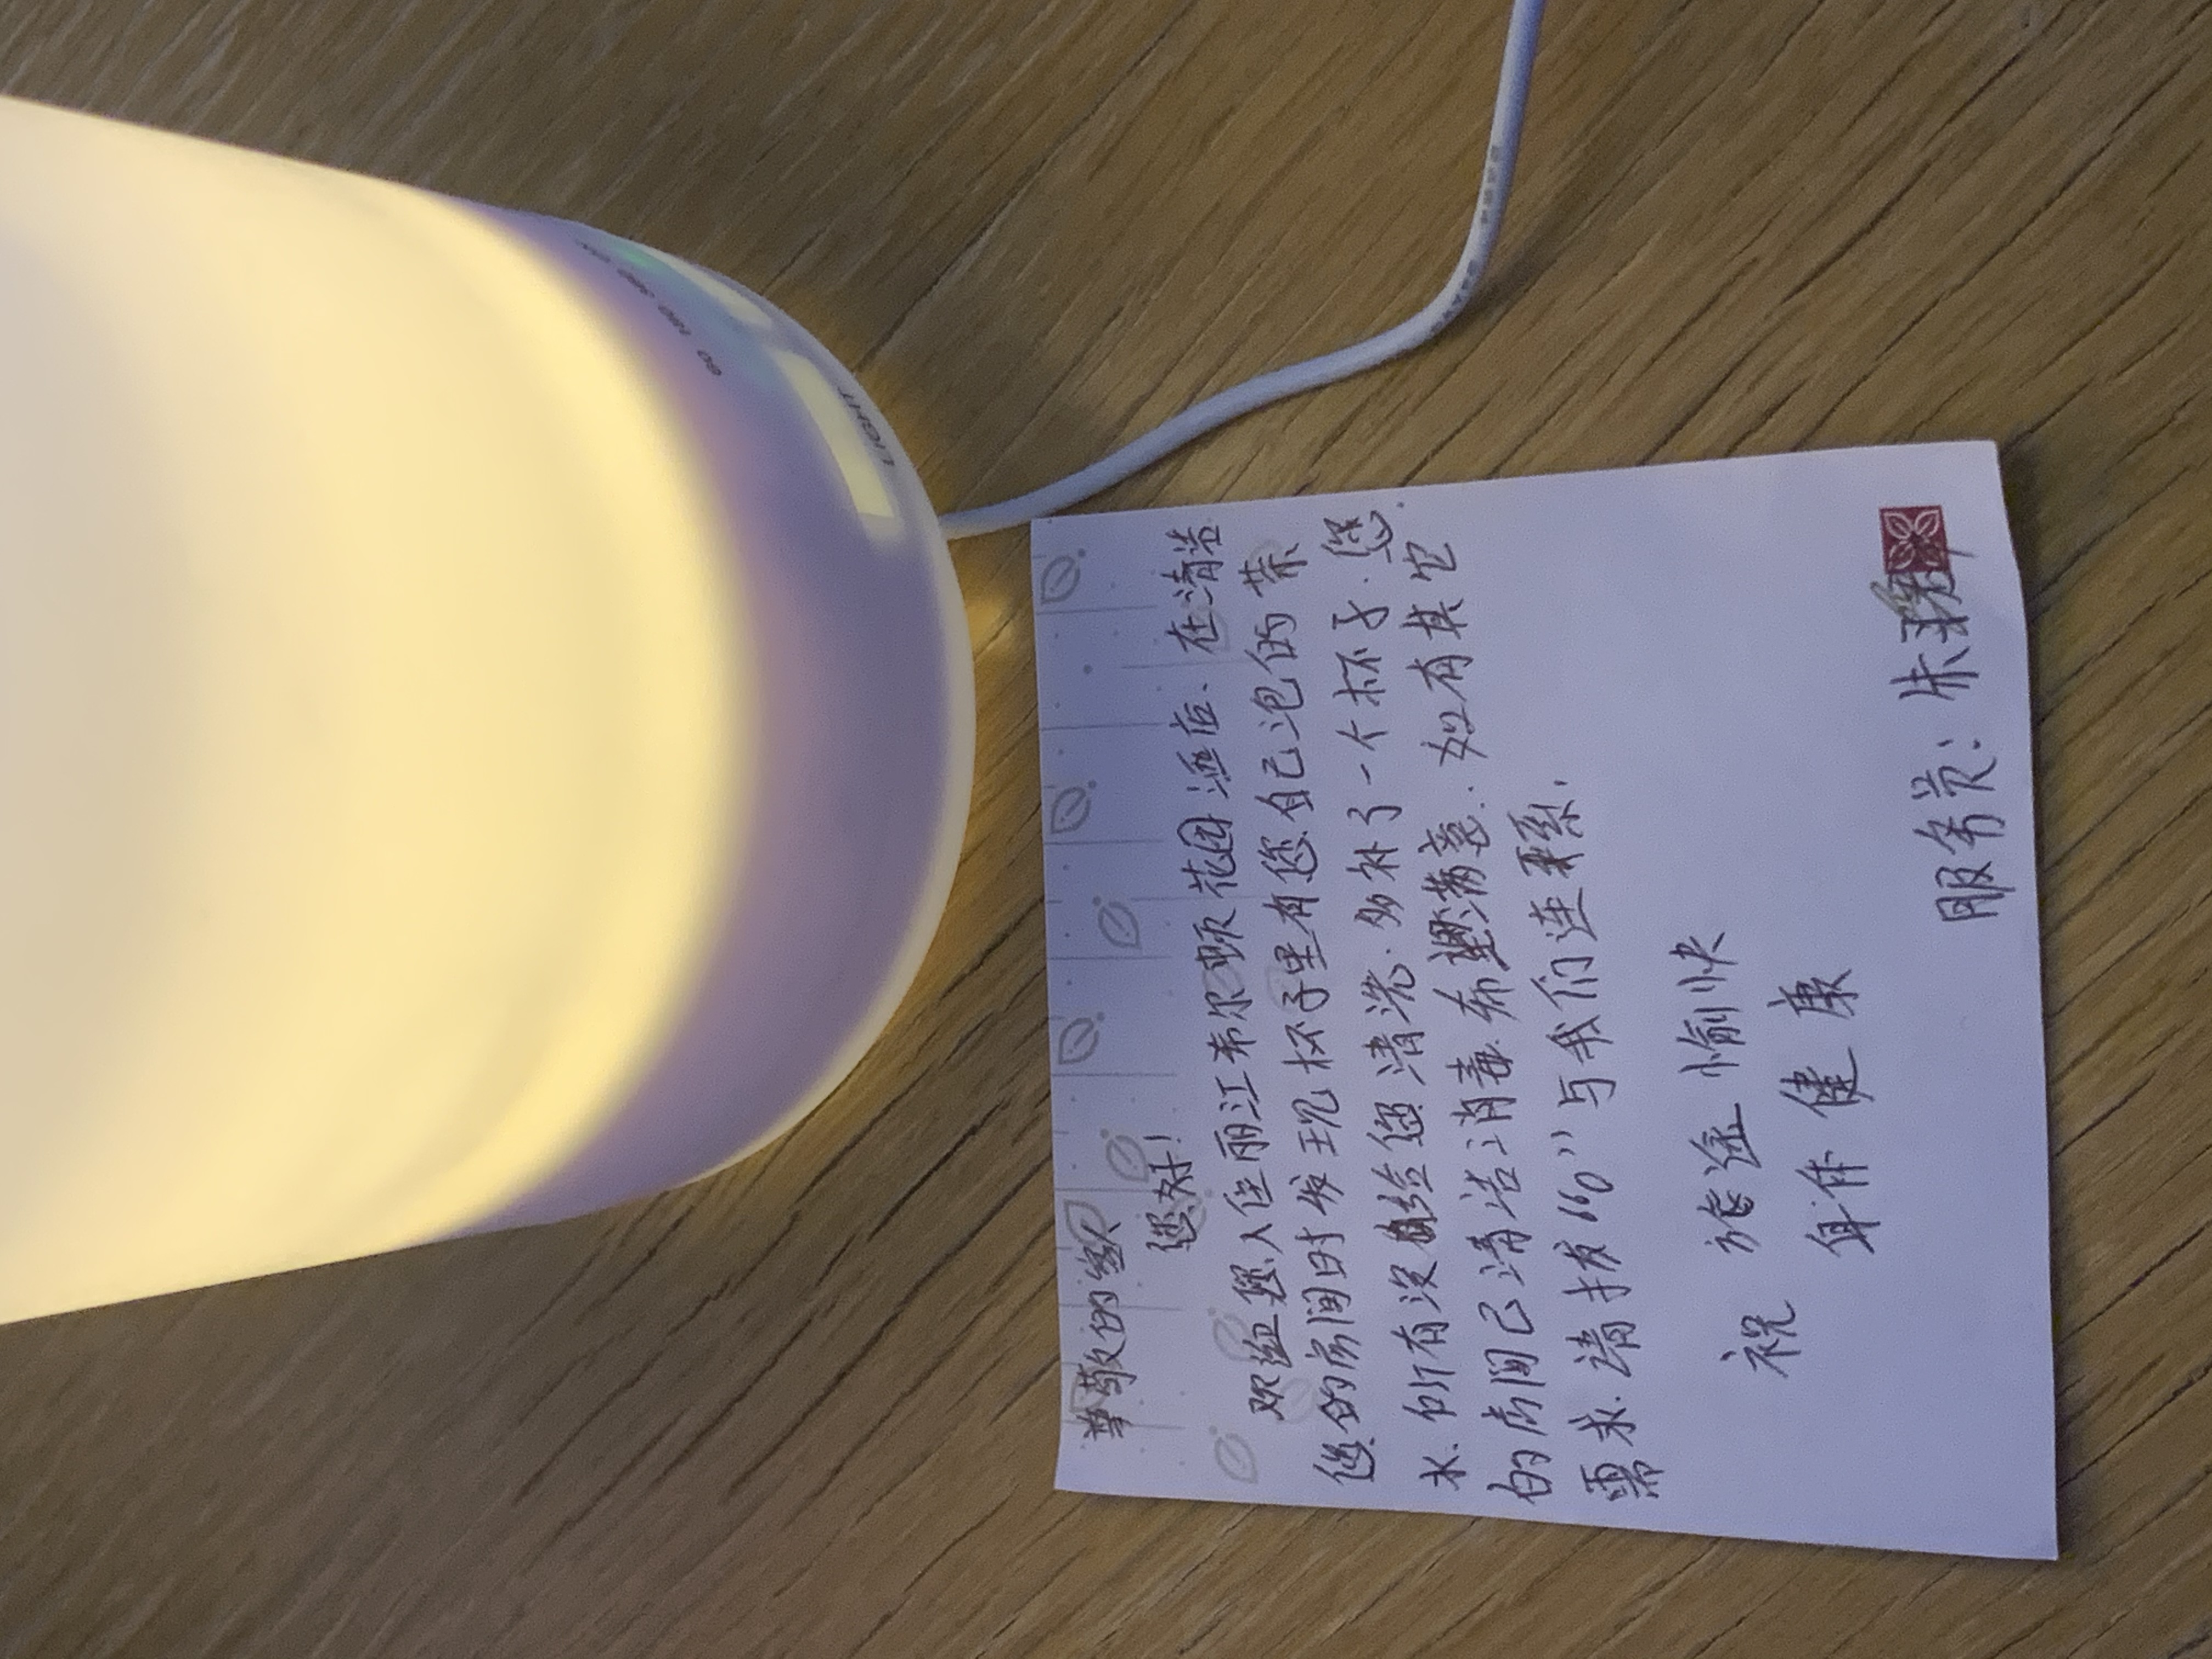 尊敬的宾客
您好!
欢迎您入住丽江希尔顿花园酒店、在清洁
您的房间时发现杯子里有您自己泡的茶
水.所有没给您清洗.多补了一个杯子.您.
的房间已清洁消毒.希望满意.如有其它
需求.请拨“0”与我们连系.
祝 旅途愉快
身体健康
服务员:朱
LIGHT
60 180 360